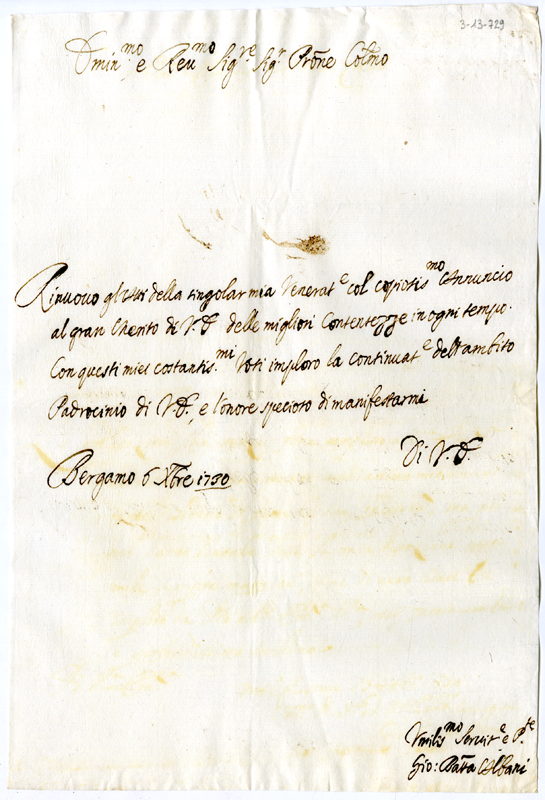 3-13-729
Emin.mo e Reu.mo Sig.re Sig.r Prõne Colmo
Rinuouo gl'Atti della singolar mia Venerat.e col copiosis.mo Annuncio
al gran Merito di V.E. delle migliori Contentezze in ogni tempo.
Con questi miei costantis.mi Voti imploro la continuat.e dell'ambito
Padrocinio di V.E., e l'onore specioso di manifestarmi
Di V.E.
Bergamo 6 Xbre 1730
Vmilis.mo Seruit.e e
Gio: Batta Albani